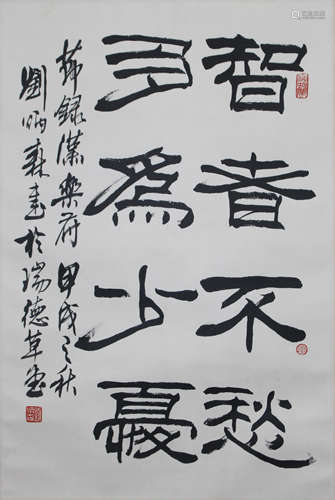 智者不愁
多為少憂
節錄漢樂府 甲戌之秋
劉炳森書於瑞德草堂